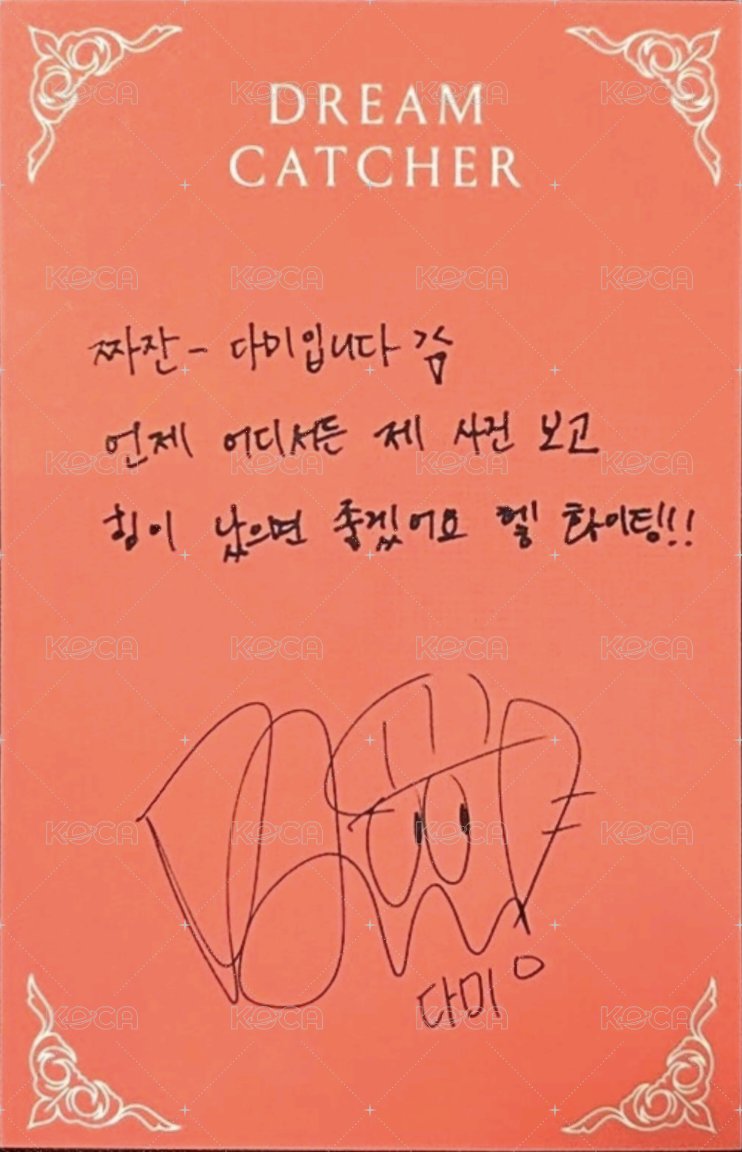 DREAM
CATCHER
짜잔- 다미입니다
언제 어디서든 제 사진 보고
힘이 났으면 좋겠어요 헿 화이팅!!
다미
KOCA